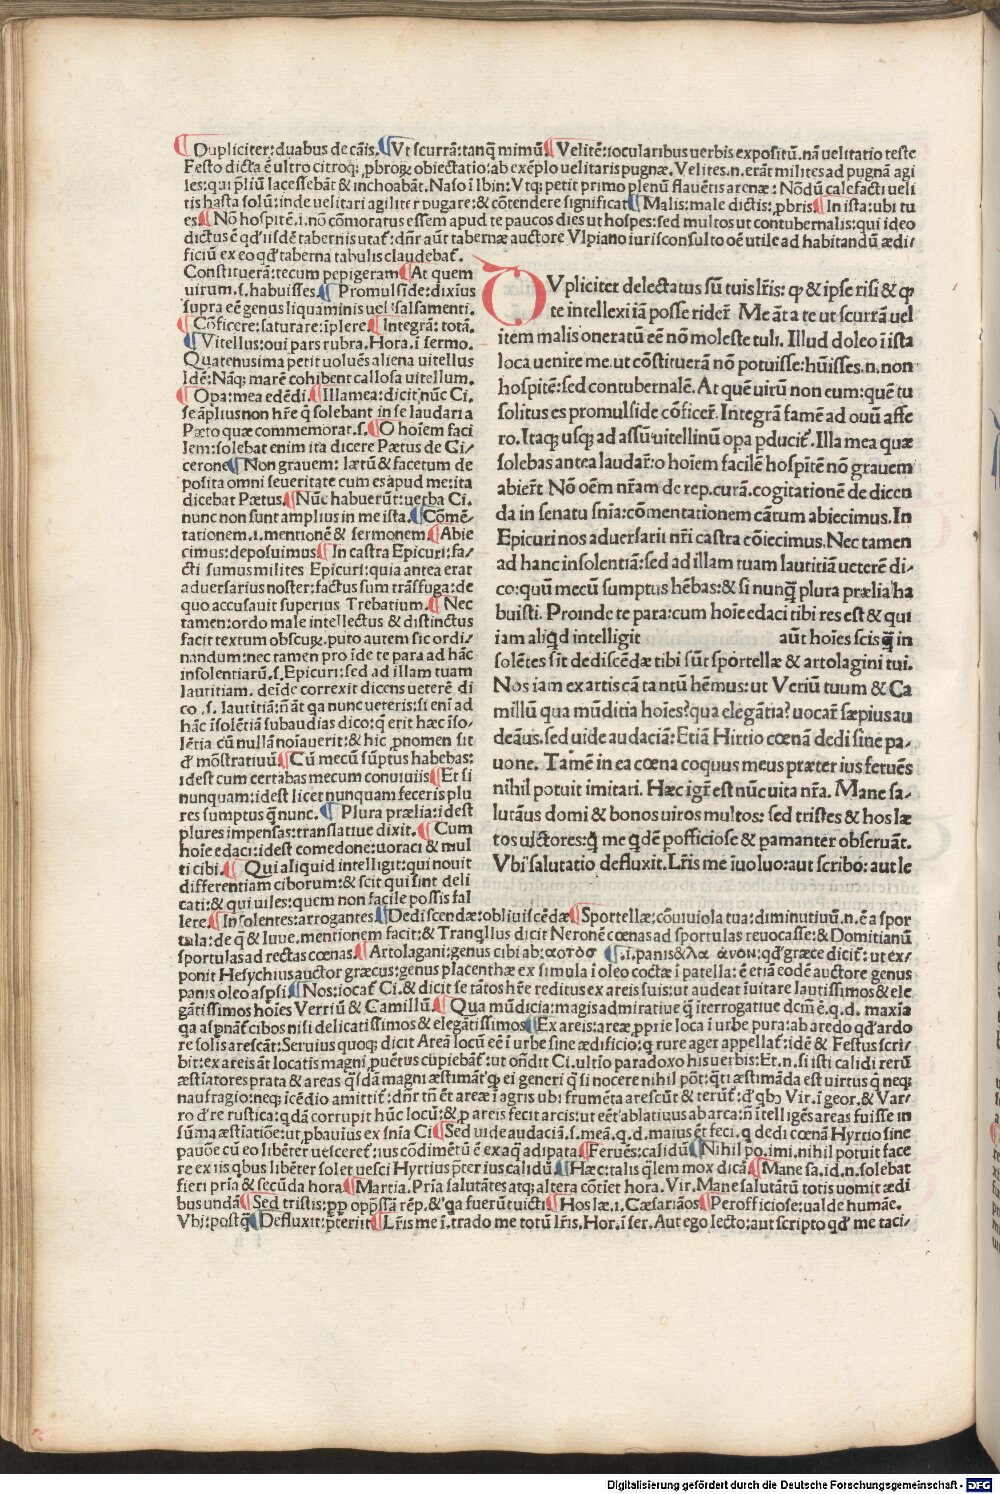 Dupliciter: duabus de cāis. Vt scurrā: tanq̄ mimū Velitē: iocularibus uerbis expositū. nā uelitatio teste
Festo dicta ē ultro citroq; ꝓbroꝝ obiectatio: ab exēplo uelitaris pugnæ. Velites. n. erāt milites ad pugnā agi
les: qui p̄liū lacessebāt & inchoabāt. Naso ī Ibin: Vtq; petit primo plenū flauētis arenæ: Nōdū calefacti ueli
tis hasta solū: inde uelitari agiliter pugare: & cōtendere significat Malis: male dictis: ꝓbris. In ista: ubi tu
es. Nō hospitē. i. nō cōmoratus essem apud te paucos dies ut hospes: sed multos ut contubernalis: qui ideo
dictus ē qd̓ iisdē tabernis utat̄: dn̄r aūt tabernæ auctore Vlpiano iurisconsulto oē utile ad habitandū ædi/
ficiū ex eo qd̓ taberna tabulis claudebat̄.
Constituerā: tecum pepigeram At quem
uirum. s. habuisses. Promulside: dixius
supra eē genus liquaminis uel salsamenti.
Cōficere: saturare: īplere. Integrā: totā.
Vitellus: oui pars rubra. Hora. ī sermo.
Quatenusima petit uoluēs aliena uitellus
Idē: Nāq; marē cohibent callosa uitellum.
Opa: mea edēdi. Illa mea: dicit nūc Ci.
se āplius non hr̄e q̄ solebant in se laudari a
Pæto quæ commemorat. s. O hoīem faci
lem: solebat enim ita dicere Pætus de Ci/
cerone Non grauem: lætū & facetum de
posita omni seueritate cum es apud me: ita
dicebat Pætus. Nūc habuerūt: uerba Ci.
nunc non sunt amplius in me ista. Cōmē/
tationem. i. mentionē & sermonem. Abie
cimus: deposuimus In castra Epicuri: fa/
cti sumus milites Epicuri: quia antea erat
aduersarius noster: factus sum trāsfuga: de
quo accusauit superius Trebatium. Nec
tamen: ordo male intellectus & distinctus
facit textum obscuꝝ. puto autem sic ordi/
nandum: nec tamen pro īde te para ad hāc
insolentiarū. s. Epicuri: sed ad illam tuam
lautitiam. deīde correxit dicens ueterē di
co. s. lautitiā: n̄ āt qa nunc ueteris: si enī ad
hāc īsolētiā subaudias dico: q̄ erit hæc īso/
lētia cū nullā noīauerit: & hic ꝓnomen sit
d̓ mōstratiuū Cū mecū sūptus habebas:
idest cum certabas mecum conuiuiis Et si
nunquam: idest licet nunquam feceris plu
res sumptus q̄ nunc. Plura prælia: idest
plures impensas: translatiue dixit. Cum
hoīe edaci: idest comedone: uoraci & mul
ti cibi. Qui aliquid intelligit: qui nouit
differentiam ciborum: & scit qui sint deli
cati: & qui uiles: quem non facile possis fal
lere. Insolentes: arrogantes Dediscendæ: obliuiscēdæ Sportellæ: cōuiuiola tua: diminutiuū. n. ē a spor
tula: de q̄ & Iuue. mentionem facit: & Tranqllus dicit Neronē cœnas ad sportulas reuocasse: & Domitianū
sportulas ad rectas cœnas. Artolagani: genus cibi ab: αοτοσ .i. panis & λα ἀνον: qd̓ græce dicit̄: ut ex/
ponit Hesychius auctor græcus: genus placenthæ ex simula ī oleo coctæ ī patella: ē etiā eodē auctore genus
panis oleo aspsi. Nos: iocat̄ Ci. & dicit se tātos hr̄e reditus ex areis suis: ut audeat īuitare lautissimos & ele
gātissimos hoīes Verriū & Camillū. Qua mūdicia: magis admiratiue q̄ īterrogatiue dcm̄ ē. q. d. maxīa
qa aspnāt̄ cibos nisi delicatissimos & elegātissimos Ex areis: areæ, pprie loca ī urbe pura: ab aredo qd̓ ardo
re solis arescāt: Seruius quoq; dicit Areā locū eē ī urbe sine ædificio: q̄ rure ager appellat̄: idē & Festus scri/
bit: ex areis āt locatis magni puētus cūpiebāt̄: ut on̄dit Ci. ultīo paradoxo his uerbis: Et. n. si isti calidi rerū
æstiatores prata & areas qs̄dā magni æstimāt qꝫ ei generi q̄ si nocere nihil pōt: qti æstimāda est uirtus q̄ neq;
naufragio: neq; īcēdio amittit̄: dn̄r tn̄ ēt areæ ī agris ubi frumēta arescūt & terūt̄: d̓ qbꝰ Vir. ī geor. & Var/
ro d̓ re rustica: q̄dā corrupit hūc locū: & p areis fecit arcis: ut eēt ablatiuus ab arca: n̄ ītelligēs areas fuisse in
sūma æstiatiōe: ut, pbauius ex snīa Ci Sed uide audaciā. s. meā. q. d. maius ēt feci. q̄ dedi cœnā Hyrtio sine
pauōe cū eo libēter uesceret̄: ius cōdimētū ē ex aq̄ adipata. Feruēs: calidū Nihil po. imi. nihil potuit face
re ex iis qbus libēter solet uesci Hyrtius p̄ter ius calidū. Hæc: talis q̄lem mox dicā. Mane sa. id. n. solebat
fieri pr̄ia & secūda hora Martia. Pr̄ia salutātes atq; altera cōtiet hora. Vir. Mane salutātū totis uomit ædi
bus undā Sed tristis: pp opp̄ssā rēp. & qa fuerūt uicti Hos læ. i. Cæsariāos Perofficiose: ualde humāe.
Vbi: postq̄ Defluxit: p̄teriit Lr̄is me ī. trado me totū lr̄is. Hor. ī ser. Aut ego lecto: aut scripto qd̓ me taci/
DVpliciter delectatus sū tuis lr̄is: qꝫ & ipse risi & qꝫ
te intellexi iā posse rider̄ Me āt a te ut scurrā uel
item malis oneratū eē nō moleste tuli. Illud doleo ī ista
loca uenire me ut cōstituerā nō potuisse: hūisses. n. non
hospitē: sed contubernalē. At quē uirū non eum: quē tu
solitus es promulside cōficer̄. Integrā famē ad ouū affe
ro. Itaq; usq; ad assū uitellinū opa pducit̄. Illa mea quæ
solebas antea laudar̄: o hoīem facilē hospītē nō grauem
abier̄t Nō oēm nr̄am de rep. curā. cogitationē de dicen
da in senatu snīa: cōmentationem cātum abiecimus. In
Epicuri nos aduersarii nr̄i castra cōiecimus. Nec tamen
ad hanc insolentiā: sed ad illam tuam lautitiā ueterē di/
co: quū mecū sumptus hēbas: & si nunq̄ plura prælia ha
buisti. Proinde te para: cum hoīe edaci tibi res est & qui
iam aliqd intelligit aūt hoīes scis q̄ in
solētes sīt dediscēdæ tibi sūt sportellæ & artolagini tui.
Nos iam ex artis cā tantū hēmus: ut Veriū tuum & Ca
millū qua mūditia hoīes? qua elegātia? uocar̄ sæpius au
deāus. sed uide audaciā: Etiā Hirtio cœnā dedi sine pa/
uone. Tamē in ea cœna coquus meus præter ius feruēs
nihil potuit imitari. Hæc igr̄ est nūc uita nr̄a. Mane sa/
lutāus domi & bonos uiros multos: sed tristes & hos læ
tos uictores: q̄ me qdē pofficiose & pamanter obseruāt.
Vbi salutatio defluxit. Lr̄is me īuoluo: aut scribo: aut le
Digitalisierung gefördert durch die Deutsche Forschungsgemeinschaft - DFG